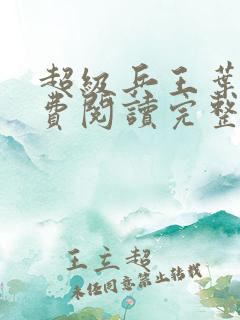 超級兵王葉
費閱讀完整
王立超
未经同意禁止转载